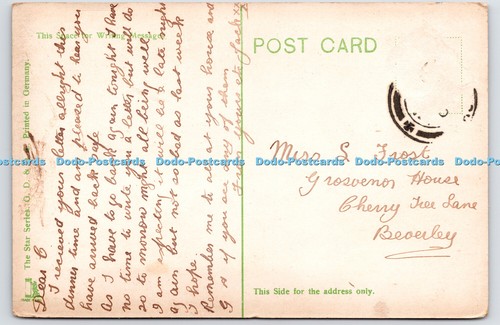 This Space for Writing Messages
POST CARD
The Star Series. G. D. & Printed in Germany.
Dear
I recieved your letter allright this
dinner time and am pleased to hear you
have arrived back safe
as I have to go back again tonight I have
no time to write you a letter but will do
so to morrow night all being well
I am expecting it will be a late night
again but not so bad as last week
I hope.
Remember me to all at your house and
if you see any of them
from yours etc Jack
Miss S Frost
Grosvenor House
Cherry Tree Lane
Beverley
This Side for the address only.
Dodo-Postcards Dodo-Postcards Dodo-Postcards Dodo-Postcards Dodo-Postcards